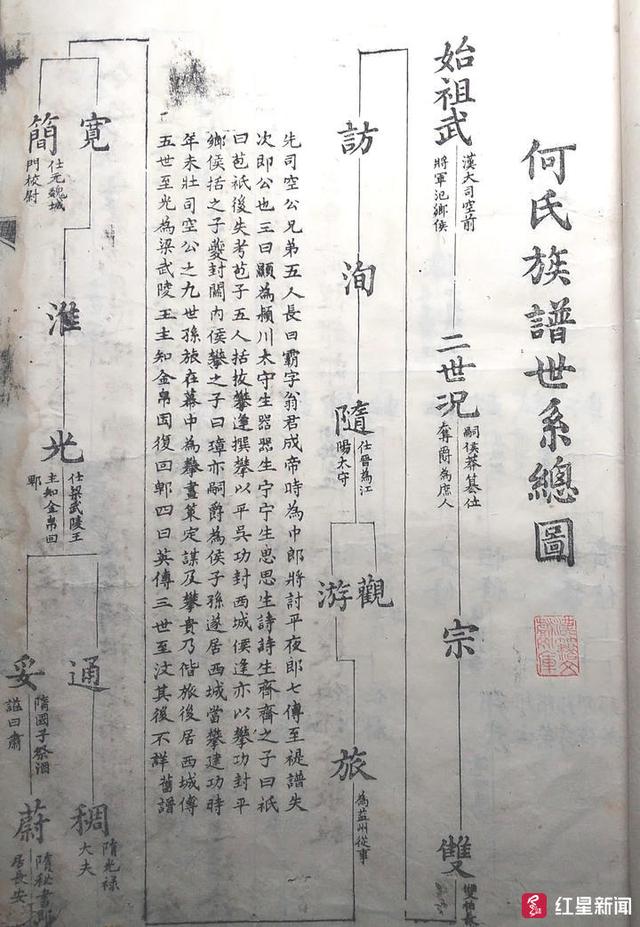 何氏族譜世系總圖
始祖武
漢大司空前
將軍氾鄉侯
二世況
嗣侯莽篡位
奪爵為庶人
宗
雙
訪
洵
隨
仕晉為江
陽太守
觀
游
旅
為益州從事
先司空公兄弟五人長曰霸字翁君成帝時為中郎將討平夜郎七傳至禔譜失
次即公也三曰顯為潁川太守生器器生宁宁生思思生詩詩生齊齊之子曰祇
曰苞祇後失考苞子五人括拔攀逢撰攀以平吳功封西城侯逢亦以攀功封平
鄉侯括之子夔封關內侯攀之子曰璋亦嗣爵為侯子孫遂居西城當攀建功時
年未壯司空公之九世孫旅在幕中為攀畫策定謀及攀貴乃偕旅後居西城傳
五世至光為梁武陵王主知金帛因復回郫四曰英傳三世至汶其後不詳舊譜
寬
簡
仕元魏城
門校尉
淮
光
仕梁武陵王
主知金帛回
郫
通
妥
隋國子祭酒
諡曰肅
稠
隋光祿
大夫
蔚
隋秘書郎
居長安
红星新闻